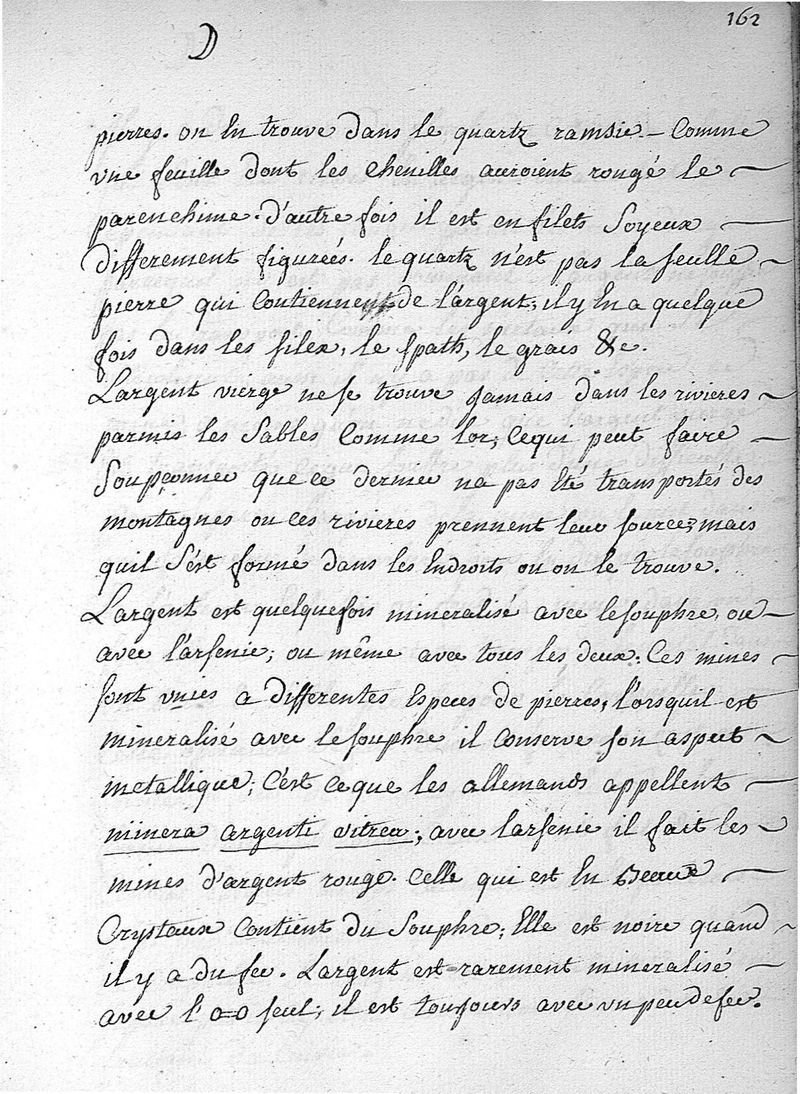 162
D
pierres. on En trouve dans le quartz ramsie - Comme
vne feuille dont les Chenilles auroient rongé le
parenchime. d'autre fois il est en filets Soyeux
differement figurées. le quartz n'est pas la seulle
pierre qui Contiennent de l'argent; il y En a quelque
fois dans les silex, le spath, le grais &c.
L'argent vierge ne se trouve Jamais dans les rivieres
parmis les Sables Comme lor; Cequi peut faire
Soupçonner que ce dernier na pas Eté transportés des
montagnes ou ces rivieres prennent leur source, mais
quil S'est formé dans les Endroits ou on le trouve.
L'argent est quelquefois mineralisé avec le souphre, ou
avec l'arsenic; ou même avec tous les deux. Ces mines
sont vnies a differentes Especes de pierres, l'orsquil est
mineralisé avec le souphre il Conserve son aspect
metallique; C'est ce que les allemands appellent
minera argenti vitrea; avec larsenic il fait les
mines d'argent rouge. Celle qui est En Beaux
Crystaux Contient du Souphre; Elle est noire quand
il y a du fer. L'argent est rarement mineralisé
avec l' o=o seul; il est toujours avec vn peu de fer.